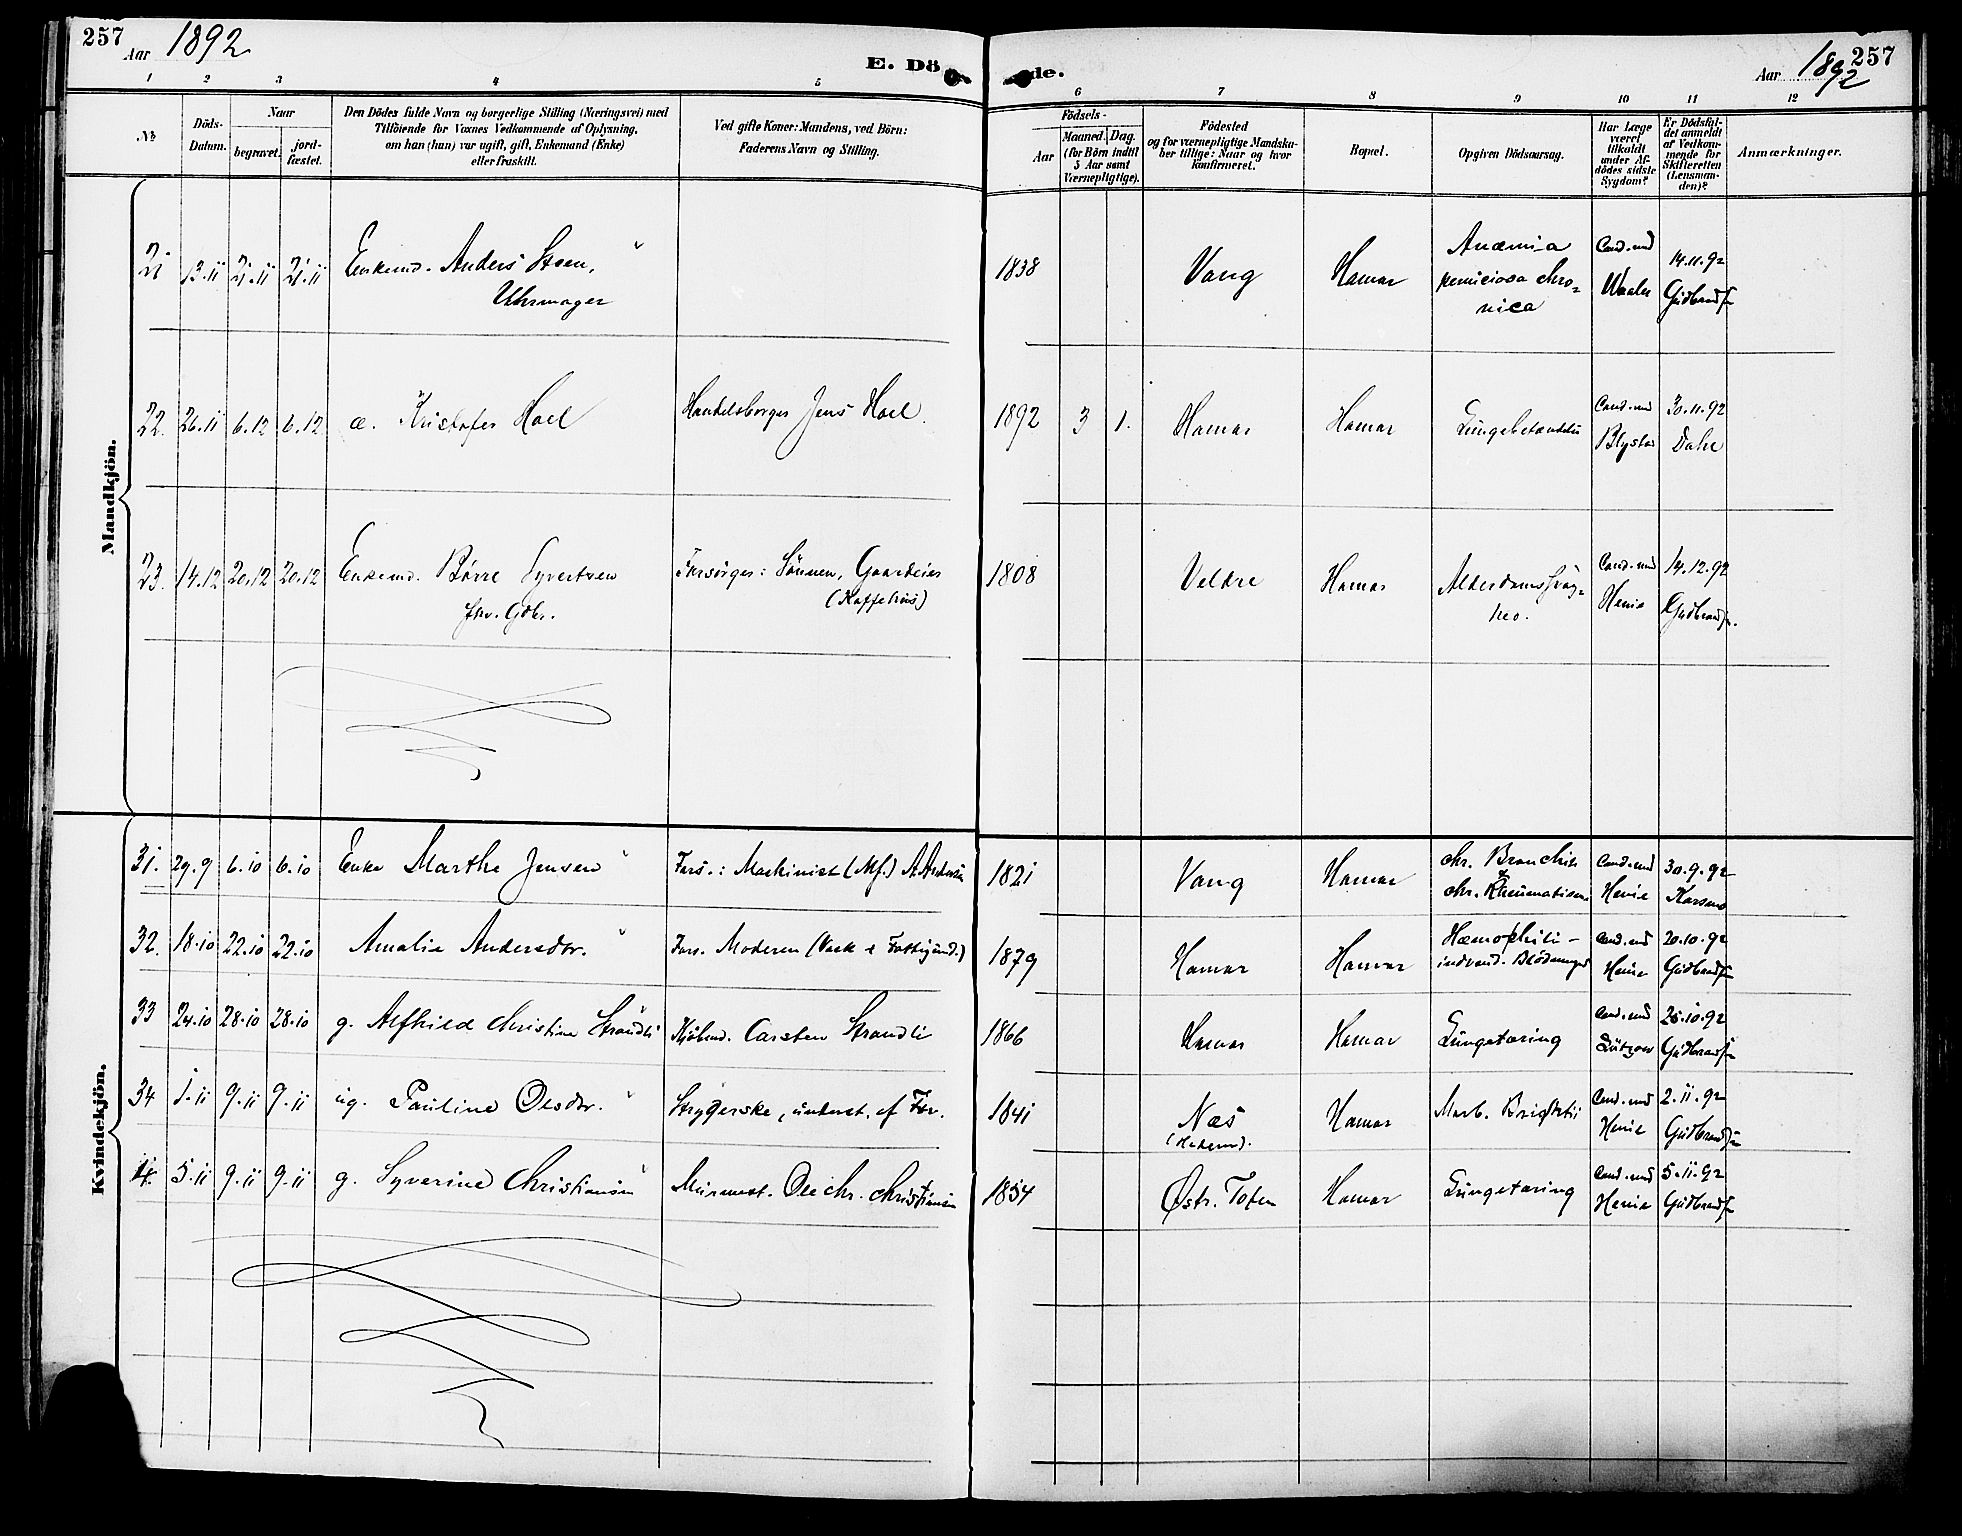 257
Aar 1892
E. Dö
de.
Aar 1892
257
1 2 3 4 5 6 7 8 9 10 11 12
№
Döds-
Datum.
Naar
begravet.
jord-
fæstet.
Den Dödes fulde Navn og borgerlige Stilling (Næringsvei) med
Tilföiende for Voxnes Vedkommende af Oplysning,
om han (hun) var ugift, gift, Enkemand (Enke)
eller fraskilt.
Ved gifte Koner: Mandens, ved Börn:
Faderens Navn og Stilling.
Födsels-
Aar
Maaned. Dag.
(for Börn indtil
5 Aar samt
Værnepligtige).
Födested
og for værnepligtige Mandska-
ber tillige: Naar og hvor
konfirmeret.
Bopæl.
Opgiven Dödsaarsag.
Har Læge
været
tilkaldt
under Af-
dödes sidste
Sygdom?
Er Dödsfal-
det anmeldt
af Vedkom-
mende for
Skifteretten
(Lensman-
den)?
Anmærkninger.
Mandkjön.
21 13.11 21.11 21.11 Enkemd. Anders Steen, 1838 Vang Hamar Anæmia Cand. med 14.11.92
Uhrmager perniciosa chro- Waaler Gudbrands.
nica
22. 26.11 6.12 6.12 æ. Kristofer Hoel Handelsborger Jens Hoel. 1892 3 1. Hamar Hamar Lungebetændelse Cand. med 30.11.92
Blystad Dahl
23. 14.12 20.12 20.12 Enkemd. Börre Syvertsen Forsörges: Sönnen, Gaardeier 1808 Veldre Hamar Alderdomssvag- Cand. med 14.12.92
fhv. Gdbr. (Kaffehus) hed. Henie Gudbrands.
Kvindekjön.
31. 29.9 6.10 6.10 Enke Marthe Jensen Fors.: Maskinist (Mf.) A. Andersen 1821 Vang Hamar chr. Bronchit Cand. med 30.9.92
& chr. Rheumatism Henie
32. 18.10 22.10 22.10 Amalie Andersdr. Fors. Moderen 1879 Hamar Hamar Hæmophili- Cand. med 20.10.92
indvend. Blödninger Henie Gudbrands.
33 24.10 28.10 28.10 g. Alfhild Christine Strandli Kjöbmd. Carsten Strandli 1866 Hamar Hamar Lungetæring Cand. med 25.10.92
Lützow Gudbrands.
34 1.11 9.11 9.11 ug. Pauline Olsdr. Strygerske, underst. af For. 1841 Næs Hamar Morb. Brightii Cand. med 2.11.92
(Hedem). Henie Gudbrands.
5.11 9.11 9.11 g. Syverine Christiansen Murmest. Ole Chr. Christiansen 1854 Østr. Toten Hamar Lungetæring Cand. med 5.11.92
Henie Gudbrands.